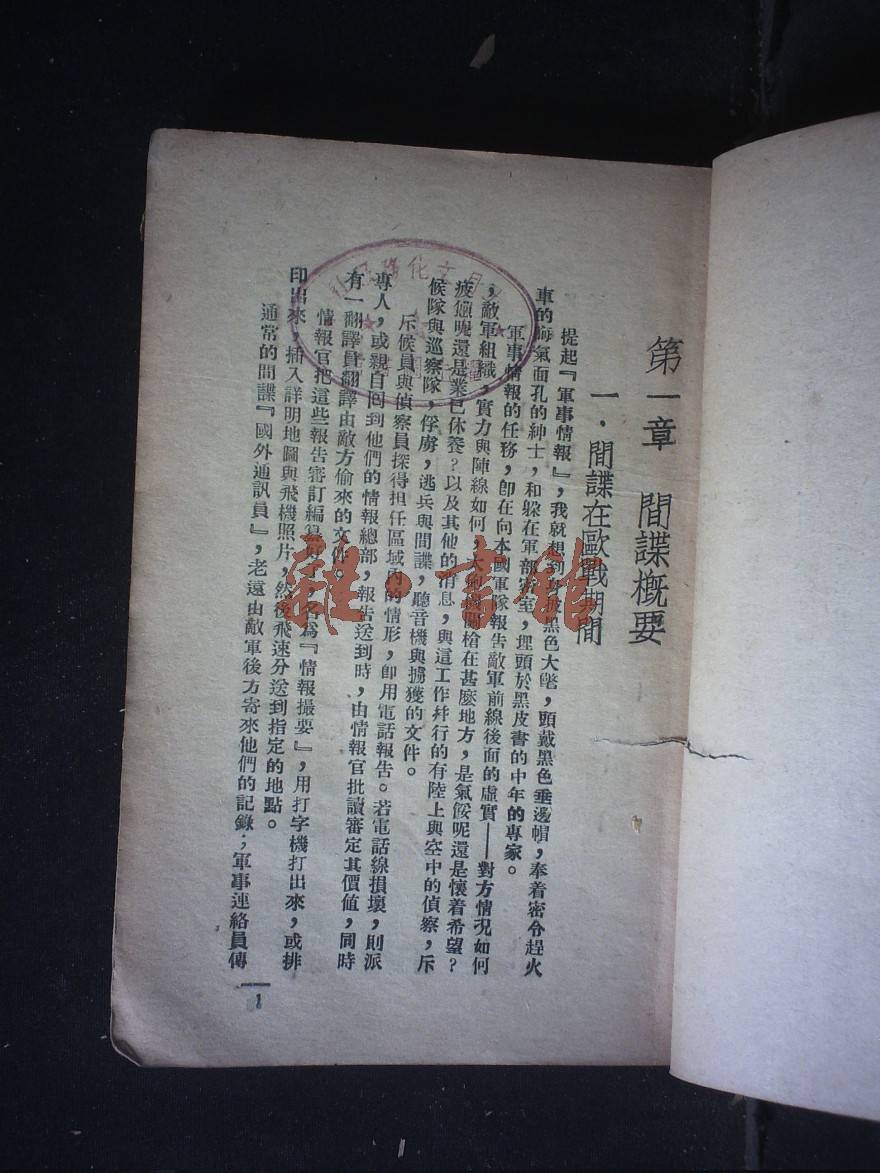 第一章　間諜概要
一・間諜在歐戰期間
提起『軍事情報』，我就想到身披黑色大氅，頭戴黑色垂邊帽，奉着密令趕火
車的晦氣面孔的紳士，和躲在軍部密室，埋頭於黑皮書的中年的專家。
軍事情報的任務，卽在向本國軍隊報告敵軍前線後面的虛實——對方情況如何
，敵軍組織，實力與陣線如何，大砲機關槍在甚麼地方，是氣餒呢還是懷着希望？
疲憊呢還是業已休養？以及其他的消息，與這工作幷行的有陸上與空中的偵察，斥
候隊與巡察隊，俘虜，逃兵與間諜，聽音機與擄獲的文件。
斥候員與偵察員探得担任區域內的情形，卽用電話報告。若電話線損壞，則派
專人，或親自回到他們的情報總部，報告送到時，由情報官批讀審定其價值，同時
有一翻譯員翻譯由敵方偷來的文件。
情報官把這些報告審訂編纂好了，名爲『情報撮要』，用打字機打出來，或排
印出來，插入詳明地圖與飛機照片，然後飛速分送到指定的地點。
通常的間諜『國外通訊員』，老遠由敵軍後方寄來他們的記錄；軍事連絡員傳
1
雜・書館